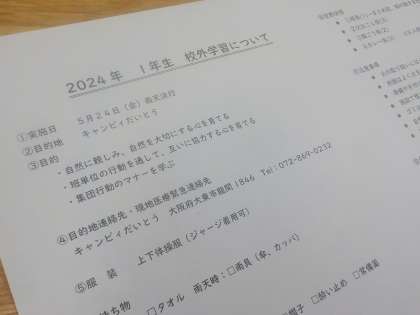 2024年　1年生　校外学習について
①実施日　5月24日（金）雨天決行
②目的地　キャンピィだいとう
③目的
・自然に親しみ、自然を大切にする心を育てる
・班単位の行動を通して、互いに協力する心を育てる
・集団行動のマナーを学ぶ
④目的地連絡先・現地医療緊急連絡先
キャンピィだいとう　大阪府大東市龍間1846　Tel：072-869-0232
⑤服　装　上下体操服（ジャージ着用可）
ち物　□タオル　雨天時：□雨具（傘、カッパ）
帽子　□酔い止め　□常備薬